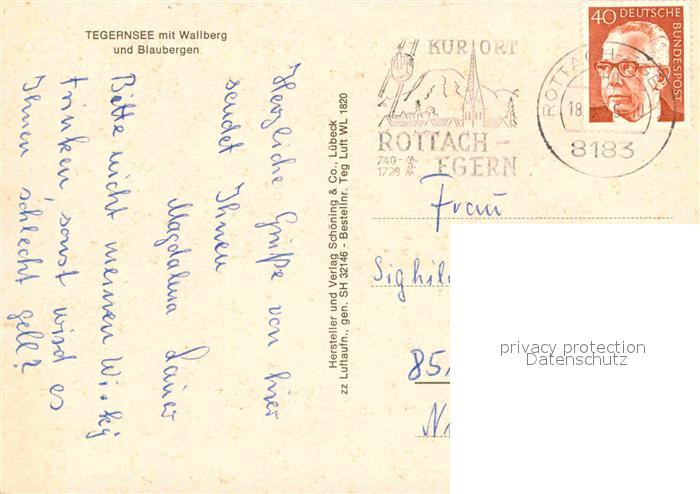 TEGERNSEE mit Wallberg
und Blaubergen
Herzliche Grüße von hier
sendet Ihnen
Magdalena Lauer
Bitte nicht meinen Wisky
trinken, sonst wird es
Ihnen schlecht gell?
Hersteller und Verlag Schöning & Co., Lübeck
zz Luftaufn., gen. SH 32146 - Bestellnr. Teg Luft WL 1820
KURORT
ROTTACH-
EGERN
740-M
1728 M
ROTTACH-EG
18.
8183
40 DEUTSCHE
BUNDESPOST
Frau
Sighil
85
N
privacy protection
Datenschutz